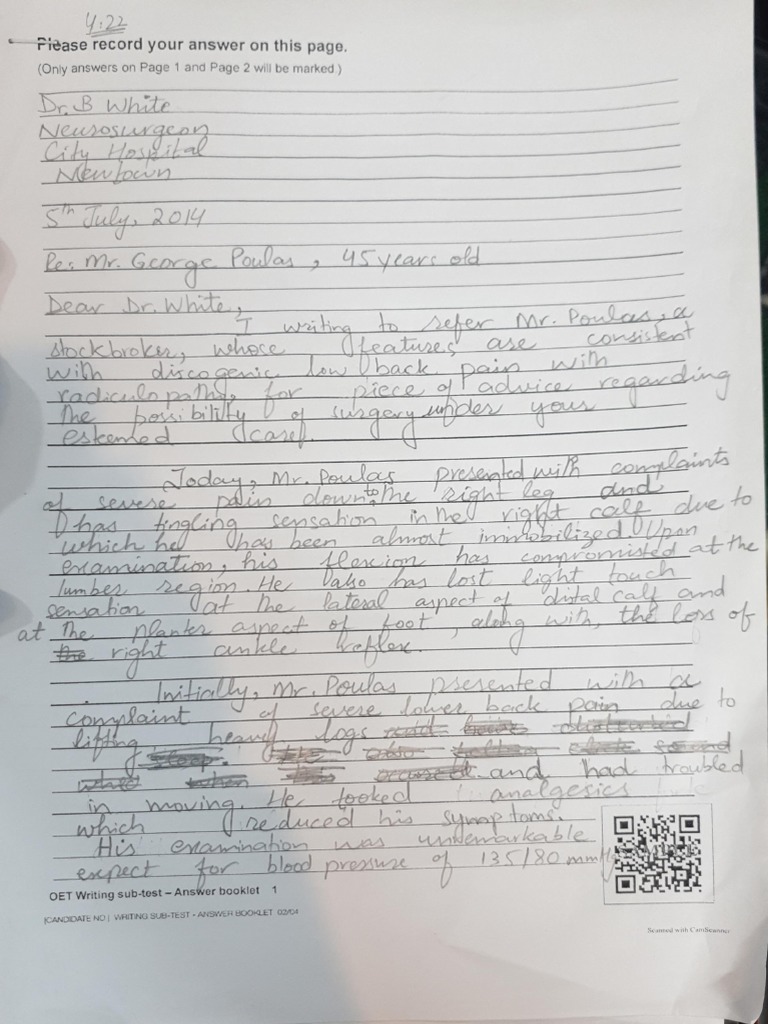 4:22
Please record your answer on this page.
(Only answers on Page 1 and Page 2 will be marked.)
Dr. B White
Neurosurgeon
City Hospital
Newtown
5th July, 2014
Re: Mr. George Poulas, 45 years old
Dear Dr. White,
I writing to refer Mr. Poulas, a
stockbroker, whose features are consistent
with discogenic low back pain with
radiculopathy, for piece of advice regarding
the possibility of surgery under your
eskemed care.
Today, Mr. Poulas presented with complaints
of severe pain down to the right leg and
has tingling sensation in the right calf due to
which he has been almost immobilized. Upon
examination, his flexion has compromisted at the
lumber region. He also has lost light touch
sensation at the lateral aspect of distal calf and
at the planter aspect of foot, along with, the loss of
the right ankle reflex.
Initially, Mr. Poulas presented with a
complaint of severe lower back pain due to
lifting heavy logs
and had troubled
in moving. He tooked analgesics
which reduced his symptoms.
His examination was unremarkable
expect for blood pressure of 135/80 mmHg
OET Writing sub-test – Answer booklet 1
[CANDIDATE NO.] WRITING SUB-TEST - ANSWER BOOKLET 02/04
Scanned with CamScanner